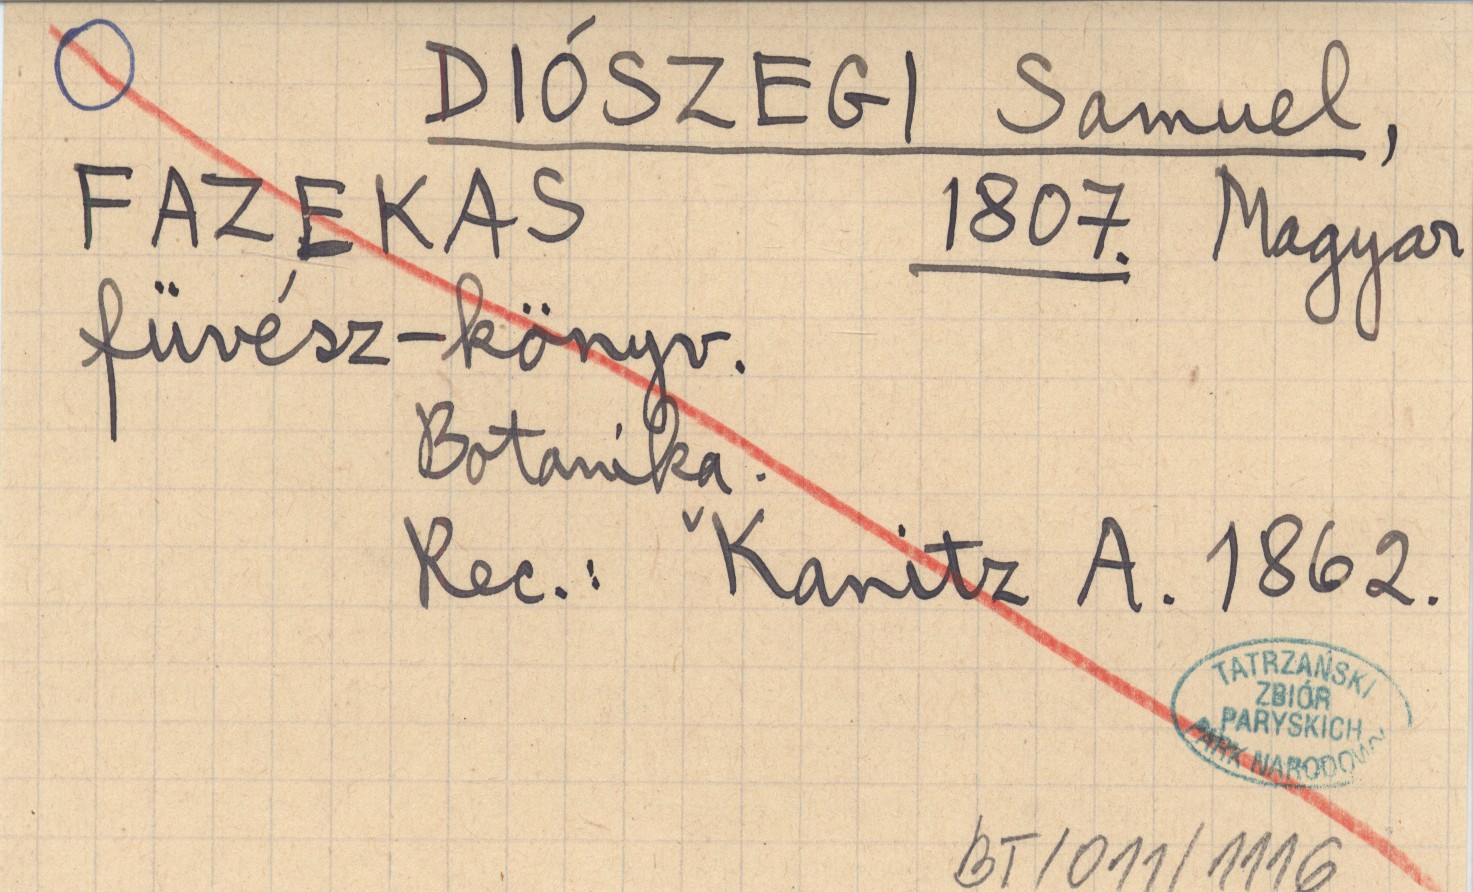 DIÓSZEGI Samuel,
FAZEKAS 1807. Magyar
füvész-könyv.
Botanika.
Rec.: ˇKanitz A. 1862.
TATRZAŃSKI
ZBIÓR
PARYSKICH
PARK NARODOWY
BT/011/1116